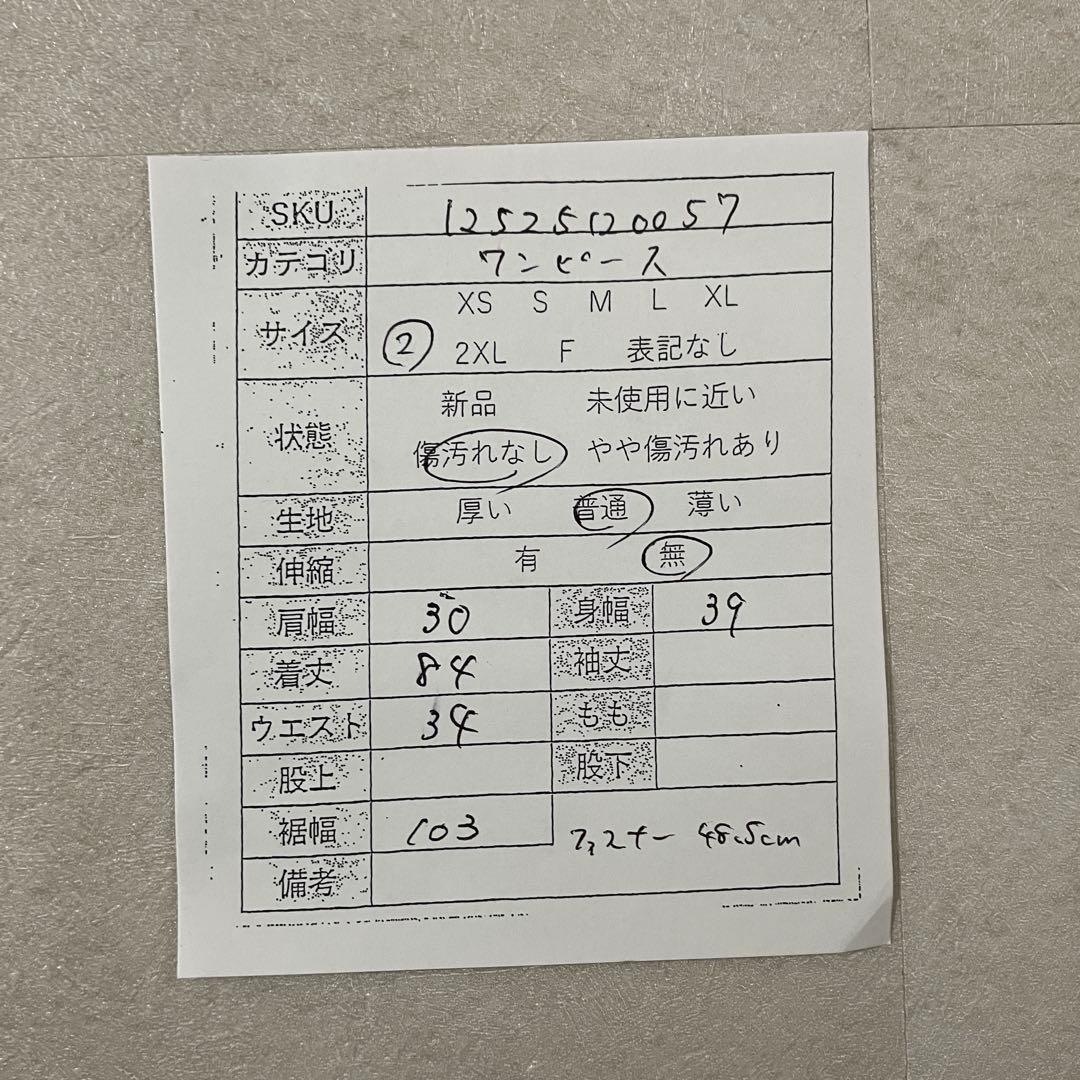 SKU 12525120057
カテゴリ ワンピース
サイズ XS S M L XL
② 2XL F 表記なし
状態 新品 未使用に近い
傷汚れなし やや傷汚れあり
生地 厚い 普通 薄い
伸縮 有 無
肩幅 30 身幅 39
着丈 84 袖丈
ウエスト 34 もも
股上 股下
裾幅 103 ファスナー 48.5cm
備考